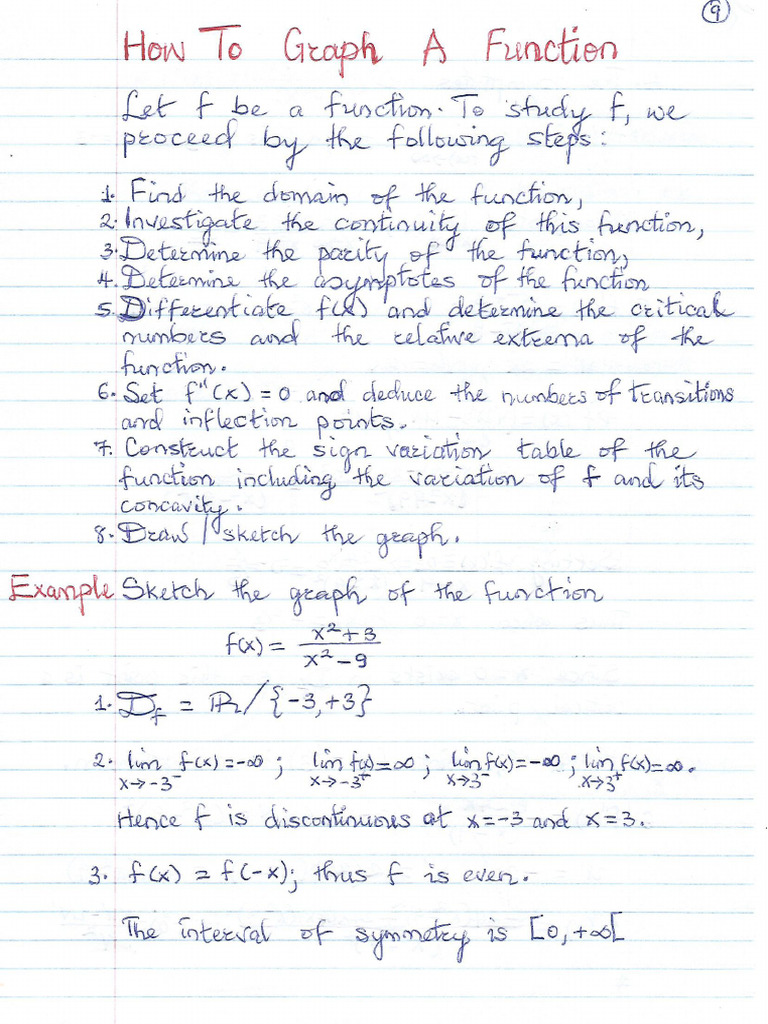 9
How To Graph A Function
Let f be a function. To study f, we
proceed by the following steps:
1. Find the domain of the function,
2. Investigate the continuity of this function,
3. Determine the parity of the function,
4. Determine the asymptotes of the function
5. Differentiate f(x) and determine the critical
numbers and the relative extrema of the
function.
6. Set f''(x) = 0 and deduce the numbers of transitions
and inflection points.
7. Construct the sign variation table of the
function including the variation of f and its
concavity.
8. Draw / sketch the graph.
Example Sketch the graph of the function
f(x) = (x² + 3)/(x² - 9)
1. D_f = ℝ/{-3, +3}
2. lim_{x→-3⁻} f(x) = -∞ ; lim_{x→-3⁺} f(x) = ∞ ; lim_{x→3⁻} f(x) = -∞ ; lim_{x→3⁺} f(x) = ∞.
Hence f is discontinuous at x = -3 and x = 3.
3. f(x) = f(-x); thus f is even.
The interval of symmetry is [0, +∞[